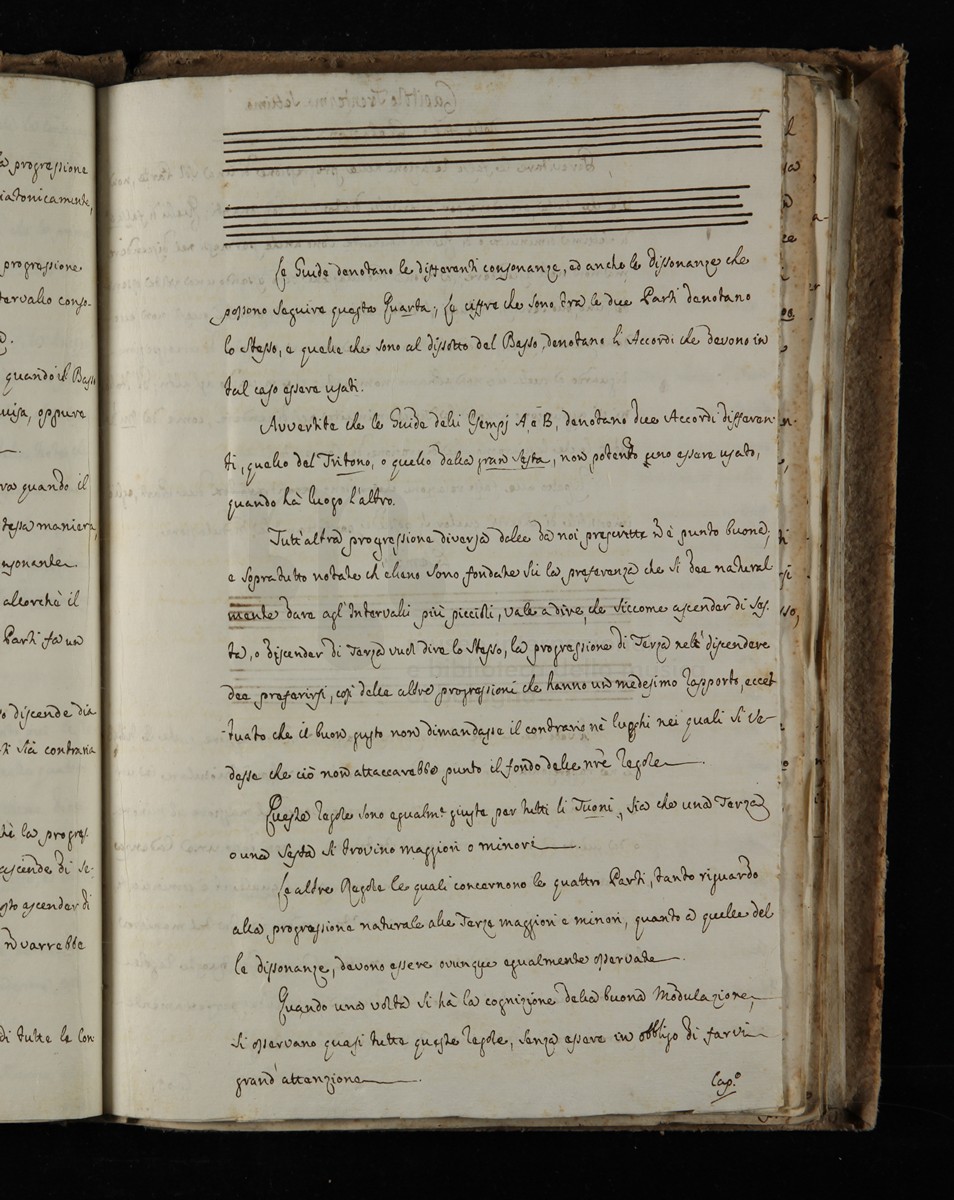 a progressione
iatonicamente,
progressione
tervallo conso-
quando il Basso
uisa, oppure
va quando il
tessa maniera,
nsonante.
allorchè il
Parti fa un
o discende dia
ti sia contraria
hè la progres.
ascende di se-
osto ascender di
ñ varrebbe
di tutte le Con
Le Guide denotano le differenti consonanze, ed anche le dissonanze che
possono seguire questa Quarta; Le ciffre che sono tra le due Parti denotano
lo Stesso, e quelle che sono al dissotto del Basso, denotano li Accordi che devono in
tal caso essere usati.
Avvertite che le Guide delli Esempj A, e B, denotano due Accordi differen-
ti, quello del Tritono, o quello della gran Sesta, non potendo uno essere usato,
quando hà luogo l'altro.
Tutt'altra progressione diversa dalle da noi prescritte ñ è punto buona;
e sopratutto notate ch'elleno sono fondate sù la preferenza che si dee natural
mente dare agl'Intervalli più piccioli, vale a dire, che siccome ascender di Ses-
ta, o discender di Terza vuol dire lo Stesso, la progressione di Terza nell'discendere
dee preferirsi, così delle altre progressioni che hanno un medesimo Rapporto, eccet
tuato che il buon gusto non dimandasse il contrario nè luoghi nei quali si ve-
desse che ciò non attaccarebbe punto il fondo delle nrẽ Regole.
Queste Regole sono egualmte giuste per tutti li Tuoni, sia che una Terza
o una Sesta si trovino maggiori o minori.
Le altre Regole le quali concernono le quattro Parti, tanto riguardo
alla progressione naturale alle Terze maggiori e minori, quanto a quelle del
le dissonanze, devono essere ovunque egualmente osservate.
Quando una volta si hà la cognizione della buona Modulazione,
si osservano quasi tutte queste Regole, senza essere in obbligo di farvi
grand'attenzione.
Cap.o